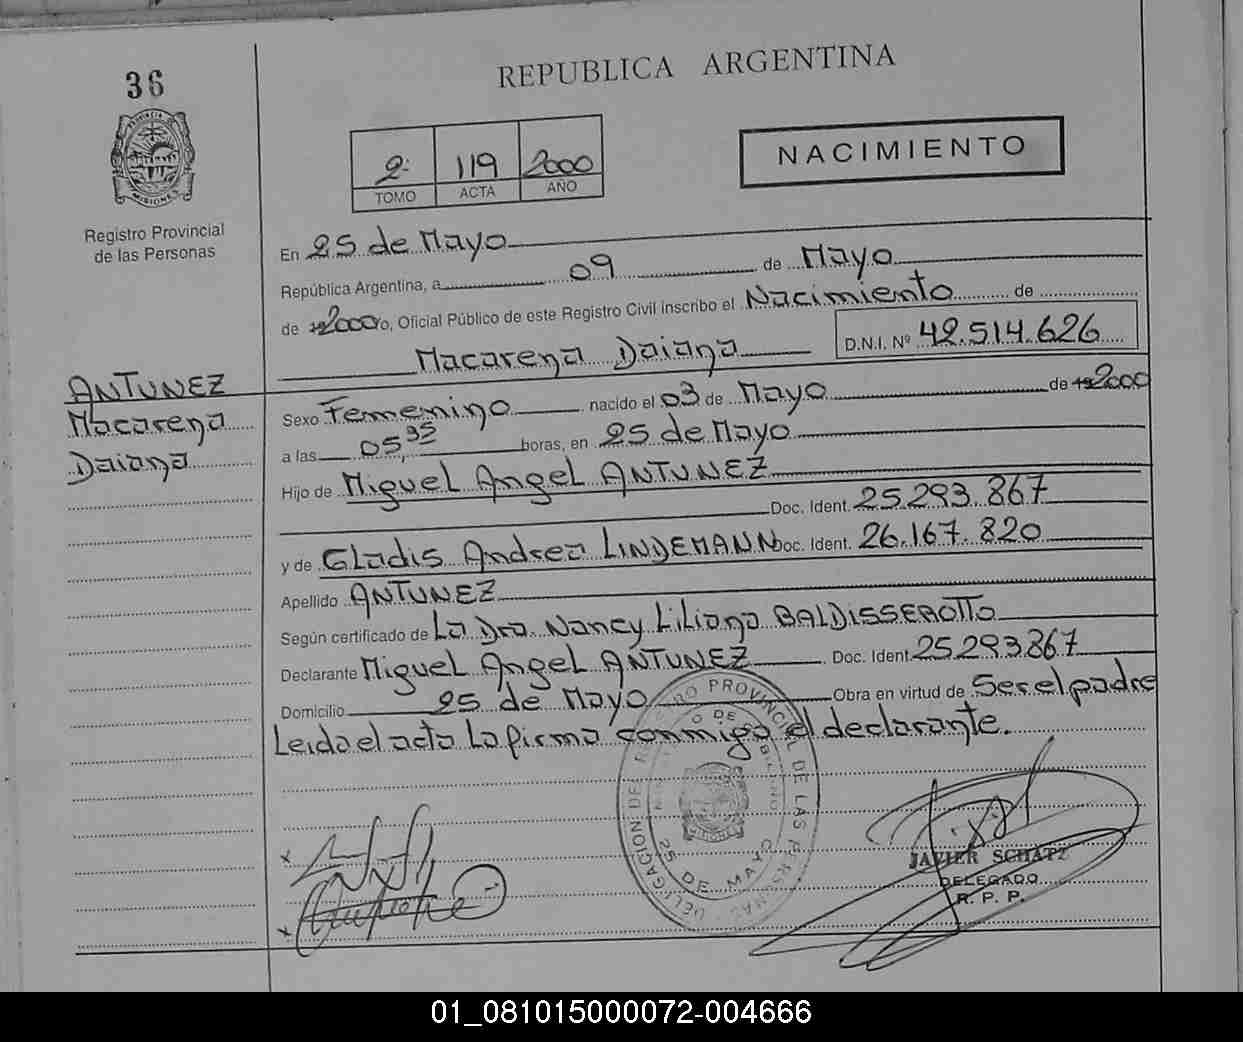 36
REPUBLICA ARGENTINA
PROVINCIA DE
MISIONES
Registro Provincial
de las Personas
2º 119 2000
TOMO ACTA AÑO
NACIMIENTO
En 25 de Mayo
República Argentina, a 09 de Mayo
de 2000 yo, Oficial Público de este Registro Civil inscribo el Nacimiento de
Macarena Daiana D.N.I. Nº 42.514.626
ANTUNEZ
Macarena
Daiana
Sexo Femenino nacido el 03 de Mayo de 19 2000
a las 05,35 horas, en 25 de Mayo
Hijo de Miguel Angel ANTUNEZ
Doc. Ident. 25.293.867
y de Gladis Andrea LINDEMANN Doc. Ident. 26.167.820
Apellido ANTUNEZ
Según certificado de La Dra. Nancy Liliana BALDISSEROTTO
Declarante Miguel Angel ANTUNEZ Doc. Ident. 25.293.867
Domicilio 25 de Mayo Obra en virtud de Ser el padre
Leida el acta la firma conmigo el declarante.
DELEGACION DE REGISTRO PROVINCIAL DE LAS PERSONAS
25 DE MAYO
JAVIER SCHATZ
DELEGADO
R. P. P.
01_081015000072-004666